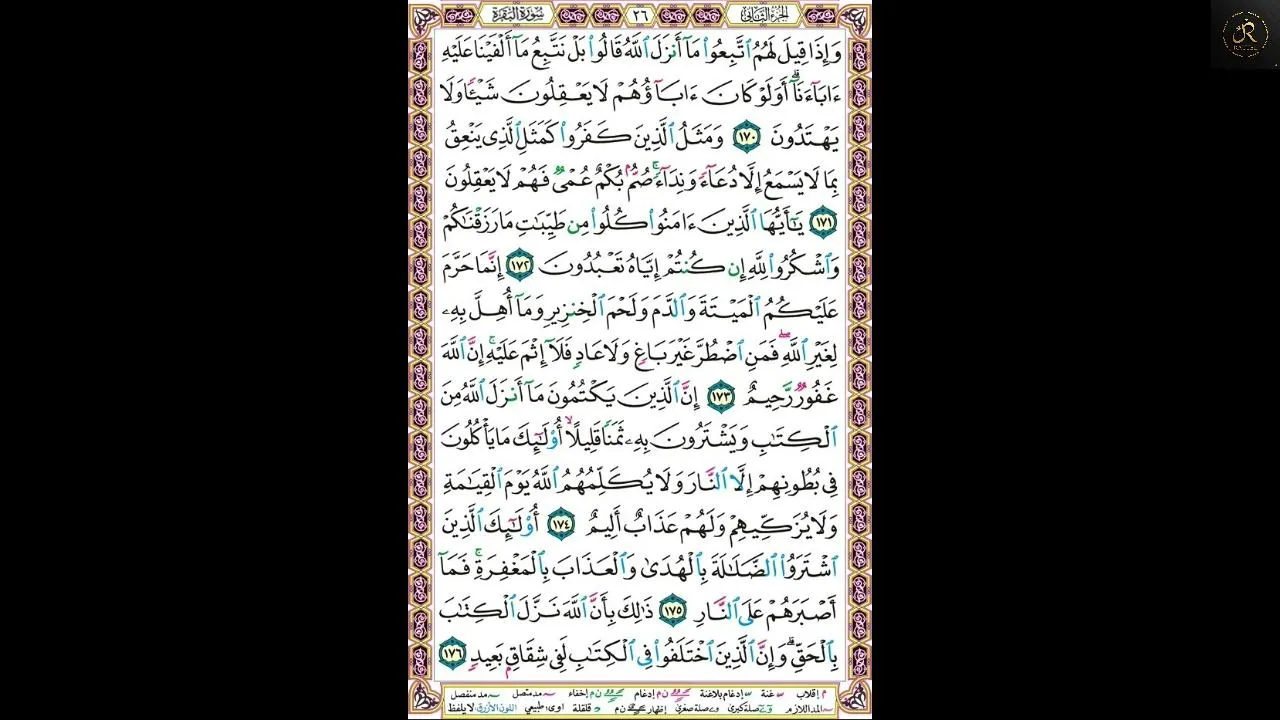 الجزء الثاني
٢٦
سورة البقرة
وَإِذَا قِيلَ لَهُمُ ٱتَّبِعُوا۟ مَآ أَنزَلَ ٱللَّهُ قَالُوا۟ بَلْ نَتَّبِعُ مَآ أَلْفَيْنَا عَلَيْهِ
ءَابَآءَنَآ ۗ أَوَلَوْ كَانَ ءَابَآؤُهُمْ لَا يَعْقِلُونَ شَيْـًٔا وَلَا
يَهْتَدُونَ ١٧٠ وَمَثَلُ ٱلَّذِينَ كَفَرُوا۟ كَمَثَلِ ٱلَّذِى يَنْعِقُ
بِمَا لَا يَسْمَعُ إِلَّا دُعَآءً وَنِدَآءً ۚ صُمٌّۢ بُكْمٌ عُمْىٌ فَهُمْ لَا يَعْقِلُونَ
١٧١ يَـٰٓأَيُّهَا ٱلَّذِينَ ءَامَنُوا۟ كُلُوا۟ مِن طَيِّبَـٰتِ مَا رَزَقْنَـٰكُمْ
وَٱشْكُرُوا۟ لِلَّهِ إِن كُنتُمْ إِيَّاهُ تَعْبُدُونَ ١٧٢ إِنَّمَا حَرَّمَ
عَلَيْكُمُ ٱلْمَيْتَةَ وَٱلدَّمَ وَلَحْمَ ٱلْخِنزِيرِ وَمَآ أُهِلَّ بِهِۦ
لِغَيْرِ ٱللَّهِ ۖ فَمَنِ ٱضْطُرَّ غَيْرَ بَاغٍ وَلَا عَادٍ فَلَآ إِثْمَ عَلَيْهِ ۚ إِنَّ ٱللَّهَ
غَفُورٌ رَّحِيمٌ ١٧٣ إِنَّ ٱلَّذِينَ يَكْتُمُونَ مَآ أَنزَلَ ٱللَّهُ مِنَ
ٱلْكِتَـٰبِ وَيَشْتَرُونَ بِهِۦ ثَمَنًا قَلِيلًا ۙ أُو۟لَـٰٓئِكَ مَا يَأْكُلُونَ
فِى بُطُونِهِمْ إِلَّا ٱلنَّارَ وَلَا يُكَلِّمُهُمُ ٱللَّهُ يَوْمَ ٱلْقِيَـٰمَةِ
وَلَا يُزَكِّيهِمْ وَلَهُمْ عَذَابٌ أَلِيمٌ ١٧٤ أُو۟لَـٰٓئِكَ ٱلَّذِينَ
ٱشْتَرَوُا۟ ٱلضَّلَـٰلَةَ بِٱلْهُدَىٰ وَٱلْعَذَابَ بِٱلْمَغْفِرَةِ ۚ فَمَآ
أَصْبَرَهُمْ عَلَى ٱلنَّارِ ١٧٥ ذَٰلِكَ بِأَنَّ ٱللَّهَ نَزَّلَ ٱلْكِتَـٰبَ
بِٱلْحَقِّ ۗ وَإِنَّ ٱلَّذِينَ ٱخْتَلَفُوا۟ فِى ٱلْكِتَـٰبِ لَفِى شِقَاقٍۭ بَعِيدٍ ١٧٦
م إقلاب غنة إدغام بلاغنة ن م إدغام ن م إخفاء مد متصل مد منفصل
المد اللازم صلة كبرى صلة صغرى إظهار ن م قلقلة اوى: طبيعي اللون الأزرق لا يلفظ